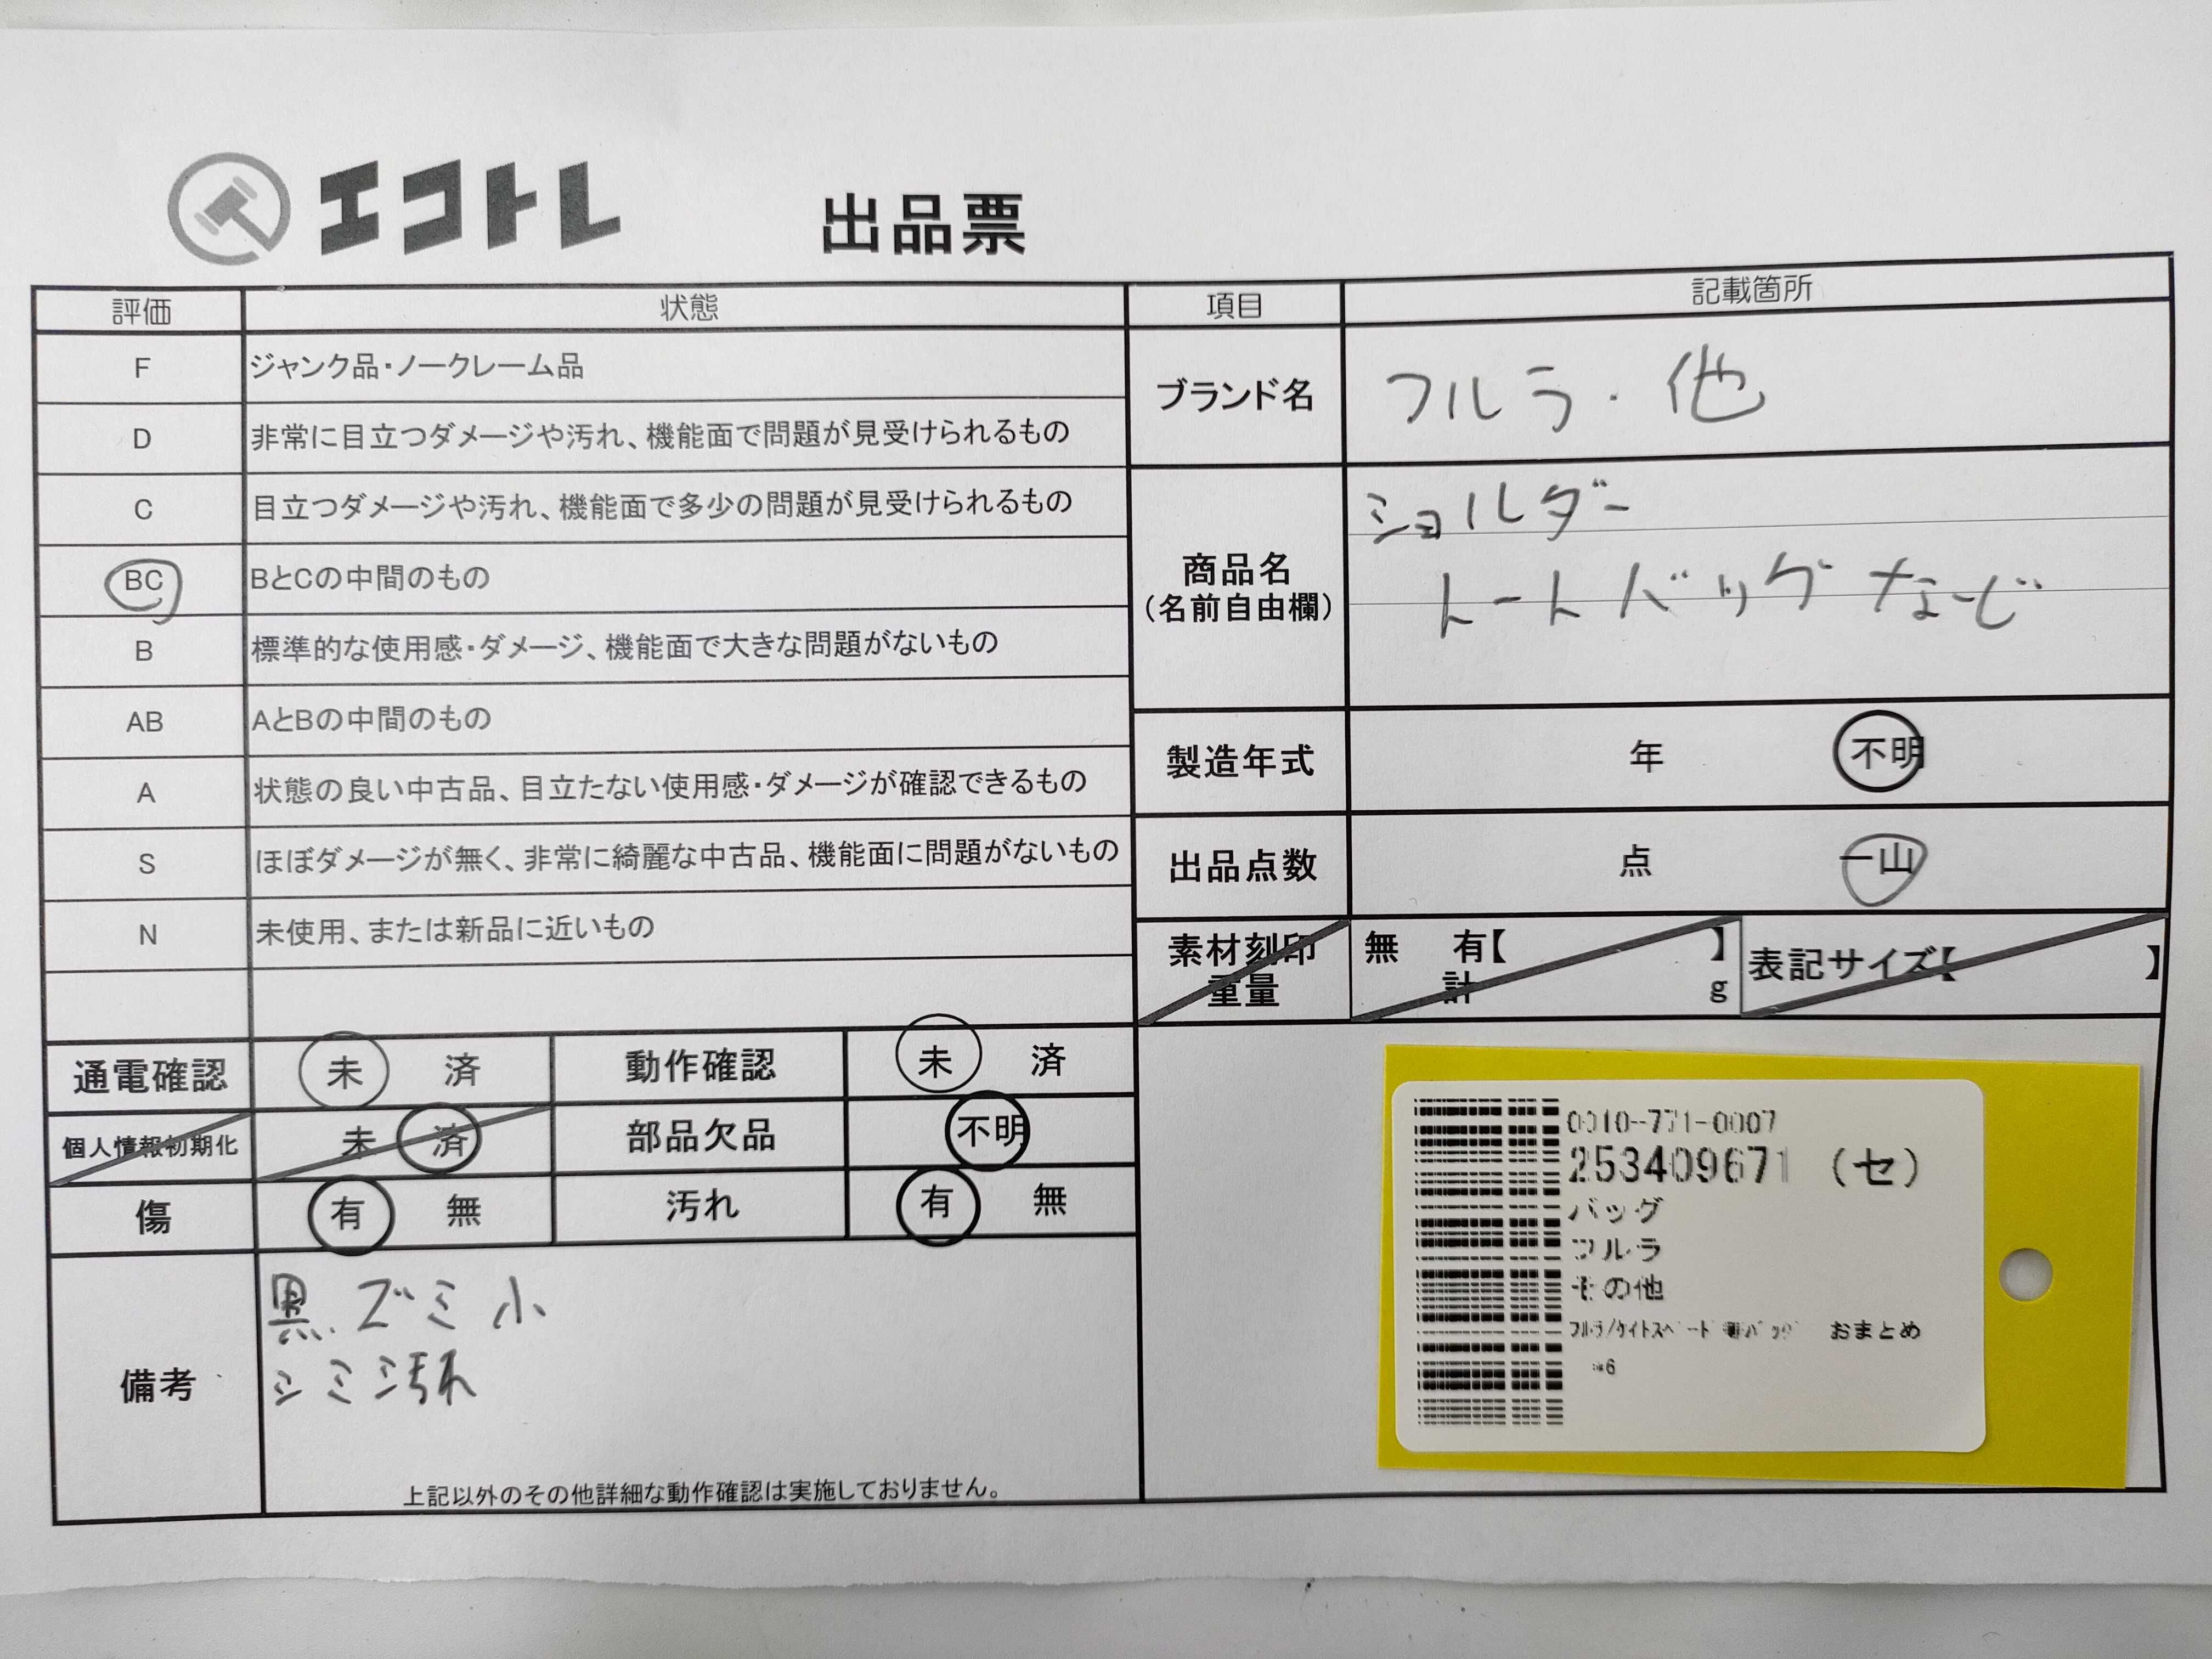 エコトレ 出品票
評価 状態
F ジャンク品・ノークレーム品
D 非常に目立つダメージや汚れ、機能面で問題が見受けられるもの
C 目立つダメージや汚れ、機能面で多少の問題が見受けられるもの
BC BとCの中間のもの
B 標準的な使用感・ダメージ、機能面で大きな問題がないもの
AB AとBの中間のもの
A 状態の良い中古品、目立たない使用感・ダメージが確認できるもの
S ほぼダメージが無く、非常に綺麗な中古品、機能面に問題がないもの
N 未使用、または新品に近いもの
項目 記載箇所
ブランド名 フルラ・他
商品名
(名前自由欄)
ショルダー
トートバッグ など
製造年式 年 不明
出品点数 点 一山
素材刻印
重量
無 有【 】
計 g
表記サイズ【 】
通電確認 未 済 動作確認 未 済
個人情報初期化 未 済 部品欠品 不明
傷 有 無 汚れ 有 無
備考
黒ズミ小
シミ汚れ
上記以外のその他詳細な動作確認は実施しておりません。
0010-771-0007
253409671 (セ)
バッグ
フルラ
その他
フルラ/ケイトスペード おまとめ